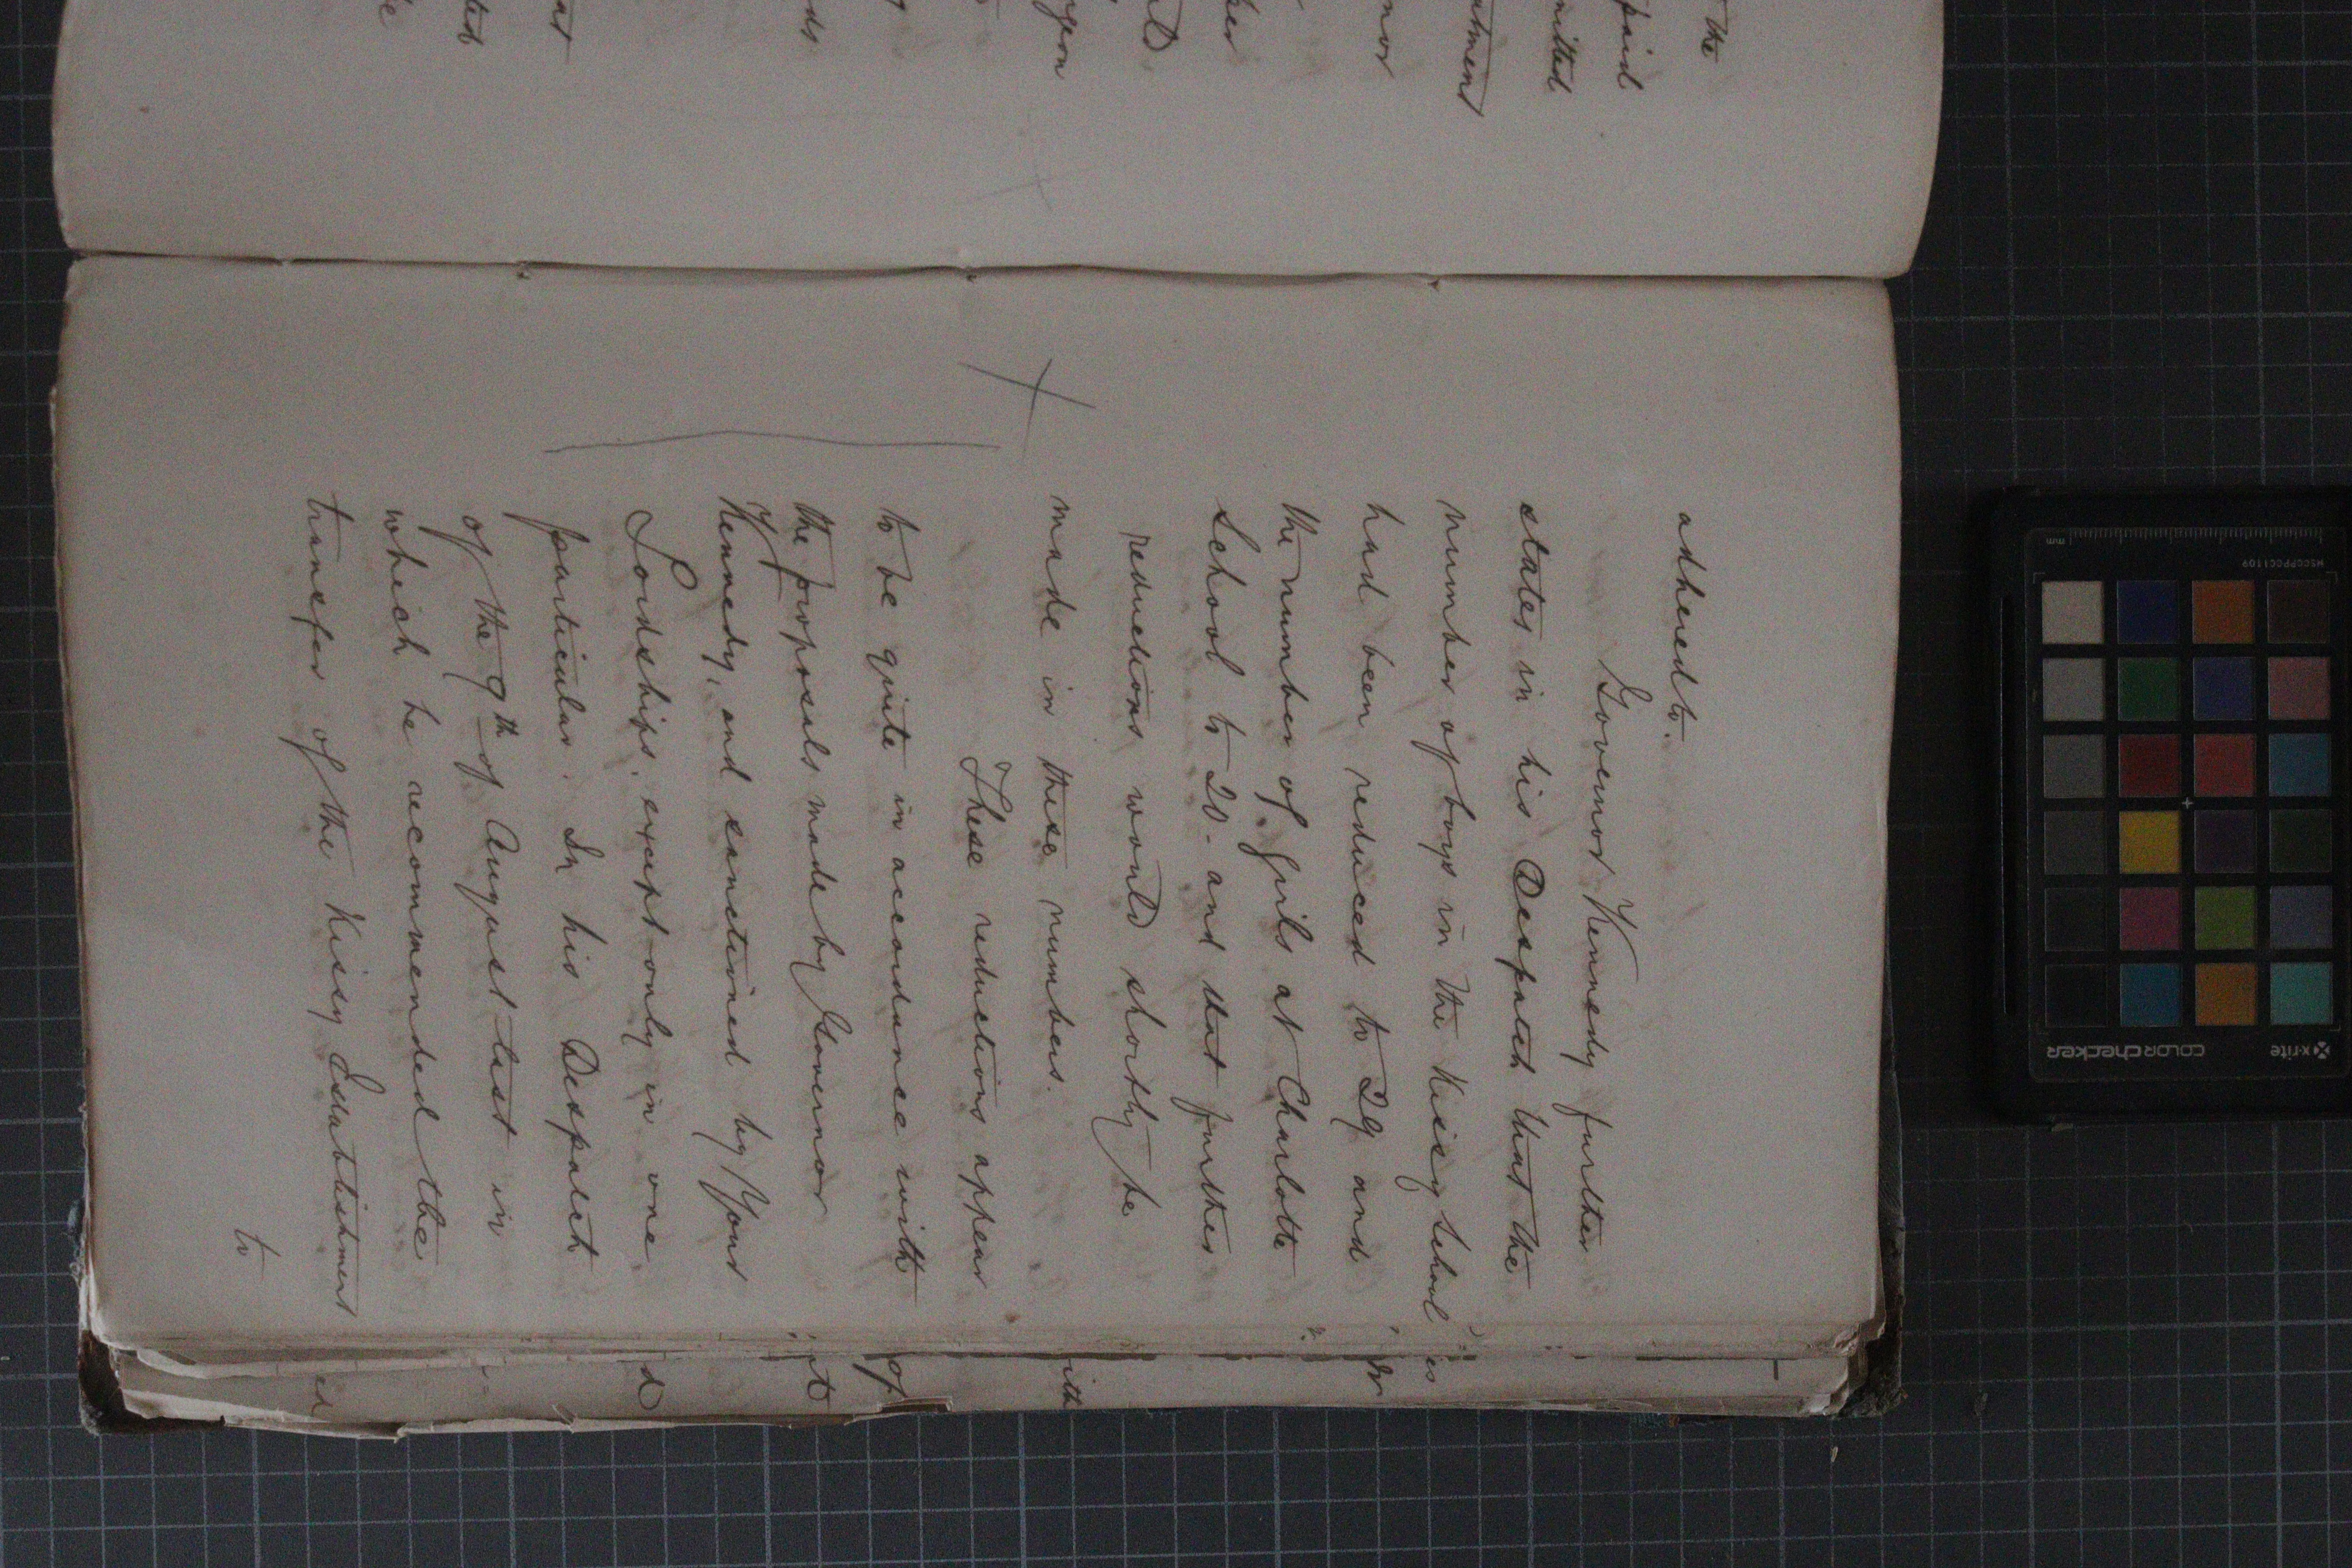 the
paid
mitted
nor
adhered to.
Governor Kennedy further
states in his Despatch that the
number of boys in the Kissy School
had been reduced to 29 and
the number of girls at Charlotte
School to 20 - and that further
reductions would shortly be
made in these numbers.
These reductions appear
to be quite in accordance with
the proposals made by Governor
Kennedy, and sanctioned by Your
Lordships, except only in one
particular. In his Despatch
of the 9th of August last in
which he recommended the
transfer of the Kissy Establishment
to
is
ith
of
d
ed
x-rite
colorchecker
MSCCPPCC1109
mm